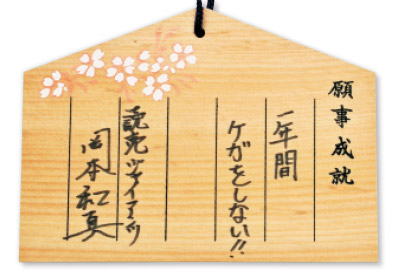 願事成就
一年間
ケガをしない!!
読売ジャイアンツ
岡本和真